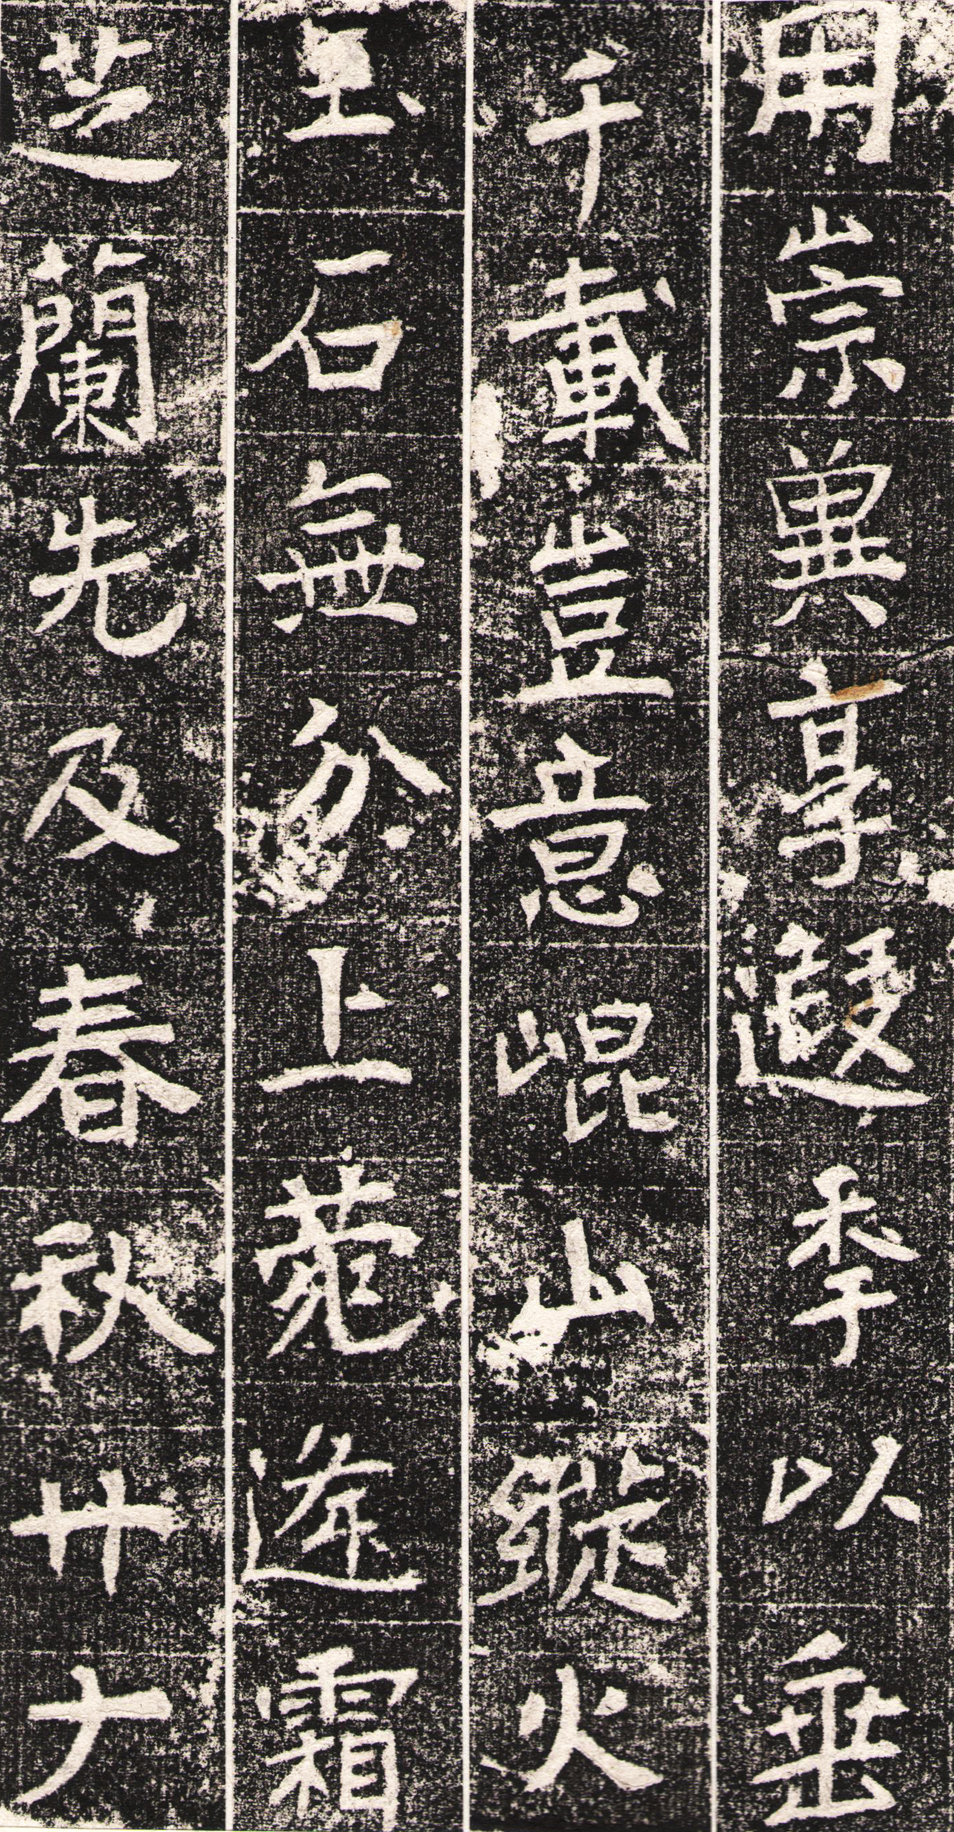 用崇冀享遐季以垂
千載豈意崐山縱火
玉石無分上菀遙霜
芝蘭先及春秋廾六